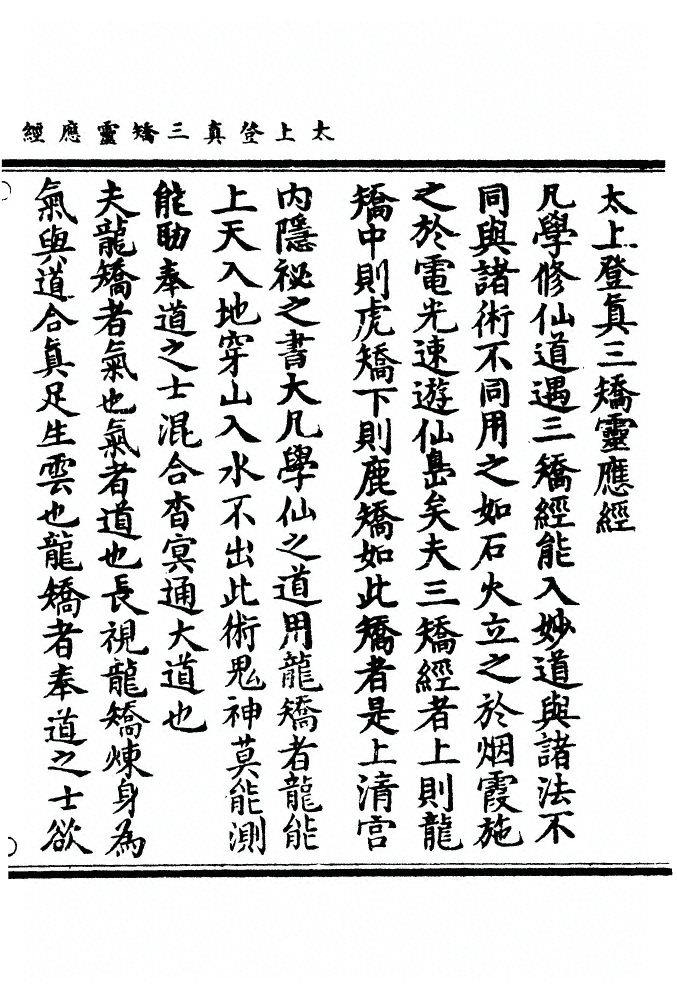 太上登真三矯靈應經
太上登真三矯靈應經
凡學修仙道遇三矯經能入妙道與諸法不
同與諸術不同用之如石火立之於烟霞施
之於電光速遊仙島矣夫三矯經者上則龍
矯中則虎矯下則鹿矯如此矯者是上清宫
內隱祕之書大凡學仙之道用龍矯者龍能
上天入地穿山入水不出此術鬼神莫能測
能助奉道之士混合杳冥通大道也
夫龍矯者氣也氣者道也長視龍矯煉身為
氣與道合真足生雲也龍矯者奉道之士欲